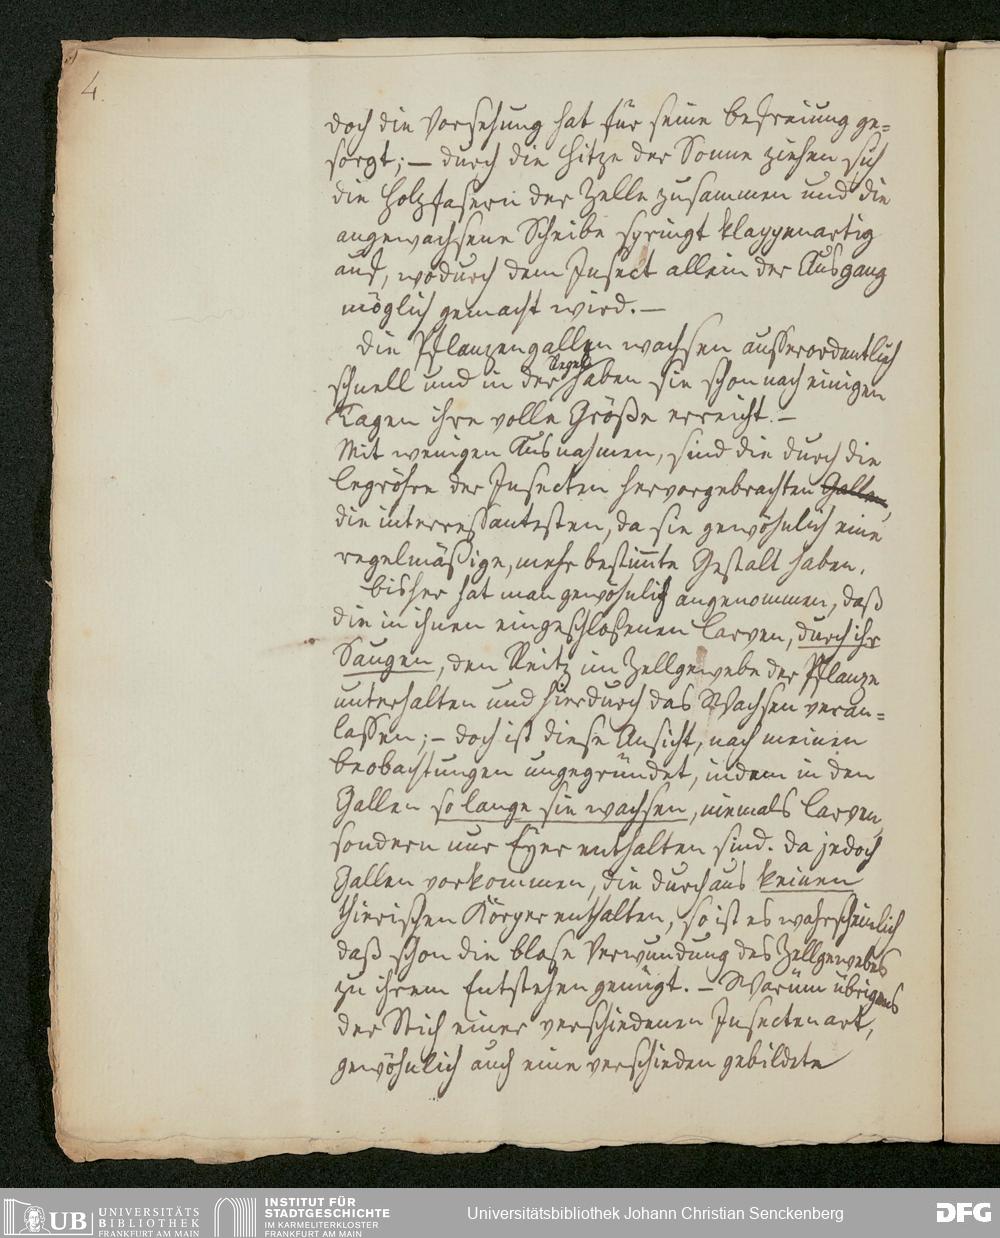 4.
doch die Vorsehung hat für seine Befreiung ge=
sorgt; – durch die Hitze der Sonne ziehen sich
die Holzfasern der Zelle zusammen und die
angewachsene Scheibe springt klappenartig
auf, wodurch dem Insect allein der Ausgang
möglich gemacht wird. –
Die Pflanzengallen wachsen ausserordentlich
Regel
schnell und in der haben sie schon nach einigen
Tagen ihre volle Größe erreicht. –
Mit wenigen Ausnahmen, sind die durch die
Legröhre der Insecten hervorgebrachten Gallen,
die interessantesten, da sie gewöhnlich eine
regelmäßige, mehr bestim̅te Gestalt haben.
Bisher hat man gewöhnlich angenommen, daß
die in ihnen eingeschloßenen Larven, durch ihr
Saugen, den Reitz im Zellgewebe der Pflanze
unterhalten und hierdurch das Wachsen veran=
lassen; – doch ist diese Ansicht, nach meinen
Beobachtungen ungegründet, indem in den
Gallen so lange sie wachsen, niemals Larven,
sondern nur Eyer enthalten sind. Da jedoch
Gallen vorkommen, die durchaus keinen
thierischen Körper enthalten, so ist es wahrscheinlich
daß schon die blose Verwundung des Zellgewebes
zu ihrem Entstehen genügt. – Warum übrigens
der Stich einer verschiedenen Insectenart,
gewöhnlich auch eine verschieden gebildete
UB UNIVERSITÄTS
BIBLIOTHEK
FRANKFURT AM MAIN
INSTITUT FÜR
STADTGESCHICHTE
IM KARMELITERKLOSTER
FRANKFURT AM MAIN
Universitätsbibliothek Johann Christian Senckenberg
DFG